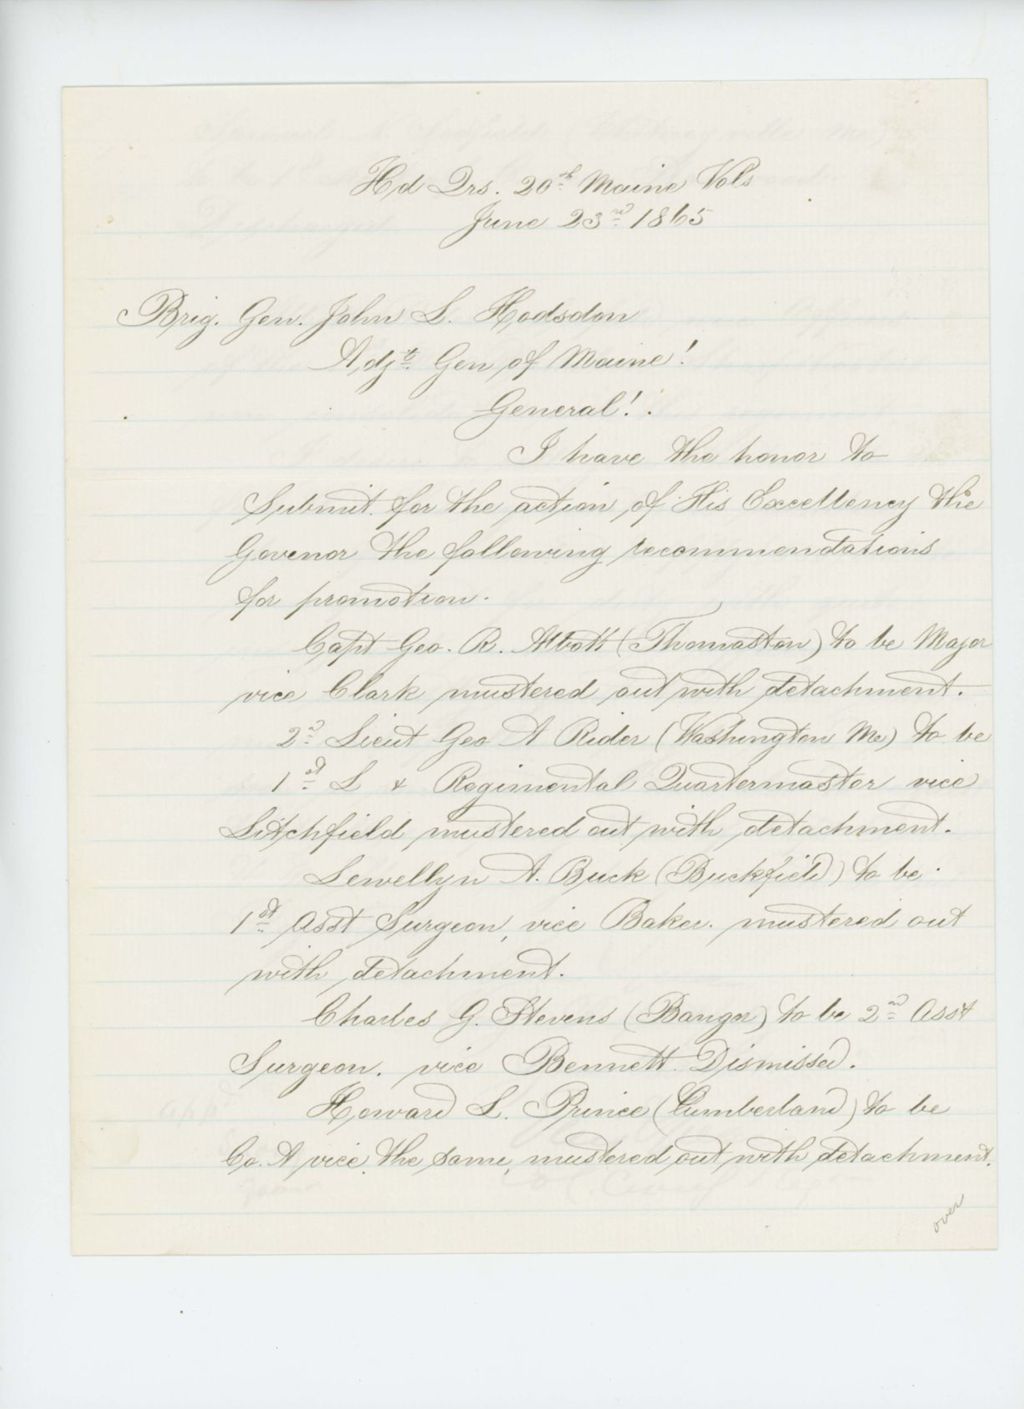 Hd Qrs. 20th Maine Vols
June 23rd 1865
Brig. Gen. John L. Hodsdon
Adjt. Gen of Maine!
General!
I have the honor to
Submit for the action of His Excellency the
Govenor the following recommendations
for promotion.
Capt Geo. R. Abbott (Thomaston) to be Major
vice Clark mustered out with detachment.
2nd Lieut Geo A Rider (Washington Me) to be
1st L & Regimental Quartermaster vice
Litchfield mustered out with detachment.
Lewellyn A. Buck (Buckfield) to be
1st Asst Surgeon, vice Baker. mustered out
with detachment.
Charles G. Stevens (Bangor) to be 2nd Asst
Surgeon. vice Bennett. Dismissed.
Howard L. Prince (Cumberland) to be
Co. A vice. the same, mustered out with detachment.
over